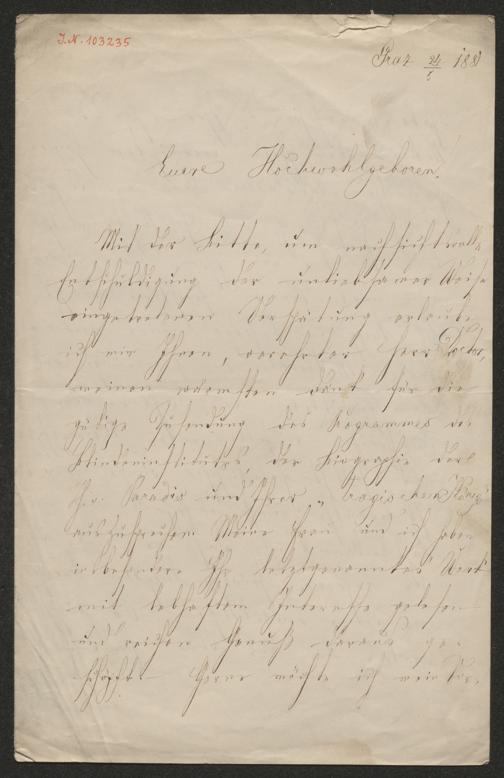 I.N. 103235
Graz 24/5 188
Euere Hochwohlgeboren!
Mit der Bitte, um nachsichtsvolle
Entschuldigung der unliebsamer Weise
eingetretenen Verspätung erlaube
ich mir Ihnen, verehrter Herr Doctor,
meinen wärmsten Dank für die
gütige Zusendung des Programmes des
Blindeninstitutes, der Biographie der
Th. v. Paradis und Ihrer „tragischen
auszusprechen. Meine Frau und ich haben
insbesondere Ihr letztgenanntes Werk
mit lebhaftem Interesse gelesen
und reichen Genuß daraus ge-
schöpft. Gerne möchte ich mein